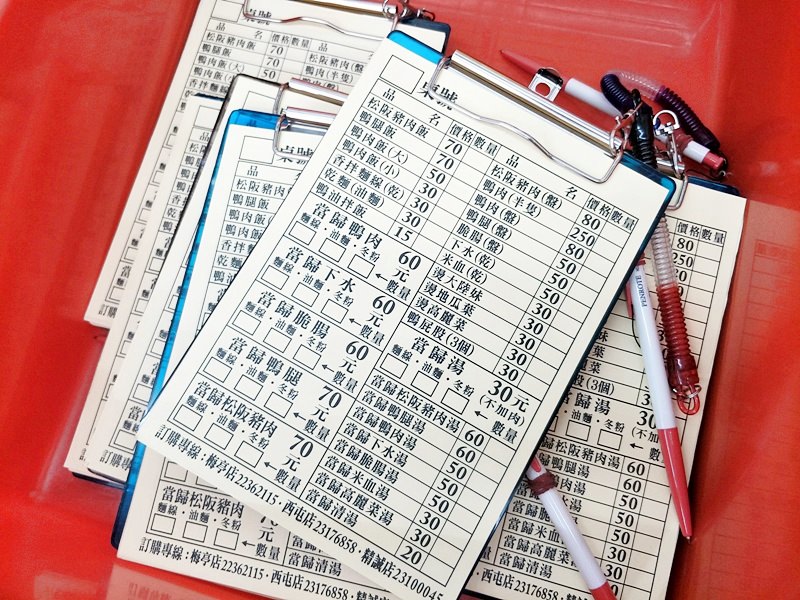 桌號
品名 價格 數量
松阪豬肉飯 70
鴨腿飯 70
鴨肉飯(大) 50
鴨肉飯(小) 30
香拌麵線(乾) 30
乾麵(油麵) 30
鴨油拌飯 15
當歸鴨肉 60元
麵線·油麵·冬粉 ←數量
當歸下水 60元
麵線·油麵·冬粉 ←數量
當歸脆腸 60元
麵線·油麵·冬粉 ←數量
當歸鴨腿 70元
麵線·油麵·冬粉 ←數量
當歸松阪豬肉 70元
麵線·油麵·冬粉 ←數量
品名 價格 數量
松阪豬肉(盤) 80
鴨肉(半隻) 250
鴨肉(盤) 80
鴨腿(盤) 50
脆腸(盤) 50
下水(乾) 50
米血(乾) 50
燙大陸妹 30
燙地瓜葉 30
燙高麗菜 30
鴨屁股(3個) 30
當歸湯 30元
(不加肉)
麵線·油麵·冬粉 ←數量
當歸松阪豬肉湯 60
當歸鴨腿湯 60
當歸鴨肉湯 50
當歸下水湯 50
當歸脆腸湯 50
當歸米血湯 30
當歸高麗菜湯 30
當歸清湯 20
訂購專線:梅亭店22362115·西屯店23176858·精誠店23100045